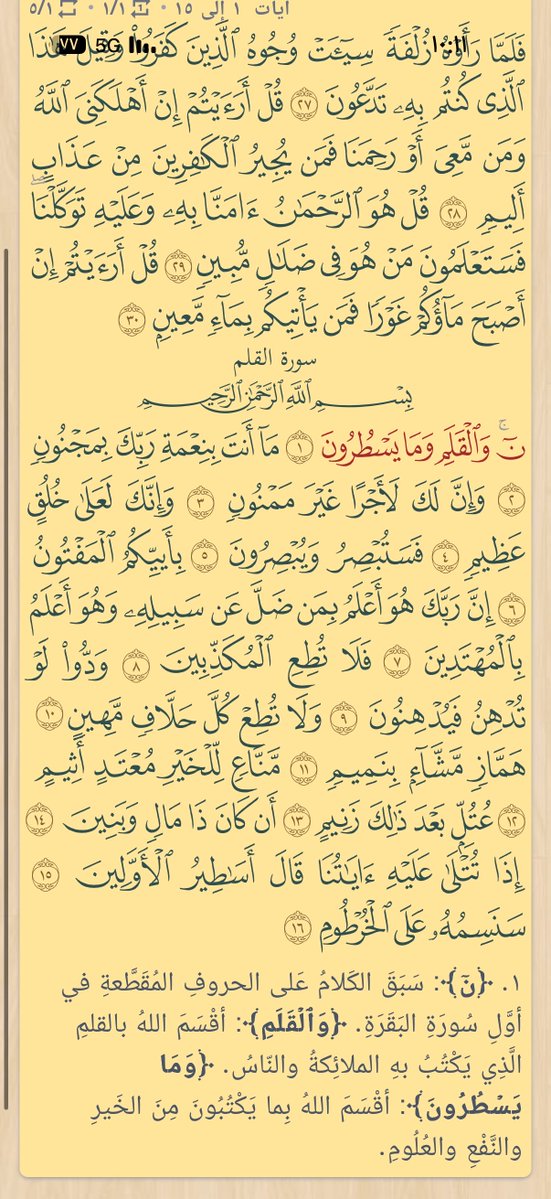 آيات ١ إلى ١٥ • ١/١ • ٥/١
VV 5G ١٠:١١
فَلَمَّا رَأَوۡهُ زُلۡفَةٗ سِيٓـَٔتۡ وُجُوهُ ٱلَّذِينَ كَفَرُواْ وَقِيلَ هَٰذَا
ٱلَّذِي كُنتُم بِهِۦ تَدَّعُونَ ٢٧ قُلۡ أَرَءَيۡتُمۡ إِنۡ أَهۡلَكَنِيَ ٱللَّهُ
وَمَن مَّعِيَ أَوۡ رَحِمَنَا فَمَن يُجِيرُ ٱلۡكَٰفِرِينَ مِنۡ عَذَابٍ
أَلِيمٖ ٢٨ قُلۡ هُوَ ٱلرَّحۡمَٰنُ ءَامَنَّا بِهِۦ وَعَلَيۡهِ تَوَكَّلۡنَاۖ
فَسَتَعۡلَمُونَ مَنۡ هُوَ فِي ضَلَٰلٖ مُّبِينٖ ٢٩ قُلۡ أَرَءَيۡتُمۡ إِنۡ
أَصۡبَحَ مَآؤُكُمۡ غَوۡرٗا فَمَن يَأۡتِيكُم بِمَآءٖ مَّعِينِۭ ٣٠
سورة القلم
بِسۡمِ ٱللَّهِ ٱلرَّحۡمَٰنِ ٱلرَّحِيمِ
نٓۚ وَٱلۡقَلَمِ وَمَا يَسۡطُرُونَ ١ مَآ أَنتَ بِنِعۡمَةِ رَبِّكَ بِمَجۡنُونٖ
٢ وَإِنَّ لَكَ لَأَجۡرًا غَيۡرَ مَمۡنُونٖ ٣ وَإِنَّكَ لَعَلَىٰ خُلُقٍ
عَظِيمٖ ٤ فَسَتُبۡصِرُ وَيُبۡصِرُونَ ٥ بِأَييِّكُمُ ٱلۡمَفۡتُونُ
٦ إِنَّ رَبَّكَ هُوَ أَعۡلَمُ بِمَن ضَلَّ عَن سَبِيلِهِۦ وَهُوَ أَعۡلَمُ
بِٱلۡمُهۡتَدِينَ ٧ فَلَا تُطِعِ ٱلۡمُكَذِّبِينَ ٨ وَدُّواْ لَوۡ
تُدۡهِنُ فَيُدۡهِنُونَ ٩ وَلَا تُطِعۡ كُلَّ حَلَّافٖ مَّهِينٍ ١٠
هَمَّازٖ مَّشَّآءِۭ بِنَمِيمٖ ١١ مَّنَّاعٖ لِّلۡخَيۡرِ مُعۡتَدٍ أَثِيمٍ
١٢ عُتُلِّۭ بَعۡدَ ذَٰلِكَ زَنِيمٍ ١٣ أَن كَانَ ذَا مَالٖ وَبَنِينَ ١٤
إِذَا تُتۡلَىٰ عَلَيۡهِ ءَايَٰتُنَا قَالَ أَسَٰطِيرُ ٱلۡأَوَّلِينَ ١٥
سَنَسِمُهُۥ عَلَى ٱلۡخُرۡطُومِ ١٦
١. ﴿نٓ﴾: سَبَقَ الكَلامُ عَلى الحروفِ المُقَطَّعةِ في
أوَّلِ سُورَةِ البَقَرَةِ. ﴿وَٱلۡقَلَمِ﴾: أقْسَمَ اللهُ بالقلمِ
الَّذِي يَكْتُبُ بهِ الملائِكةُ والنّاسُ. ﴿وَمَا
يَسۡطُرُونَ﴾: أقْسَمَ اللهُ بِما يَكْتُبُونَ مِنَ الخَيرِ
والنَّفْعِ والعُلُومِ.